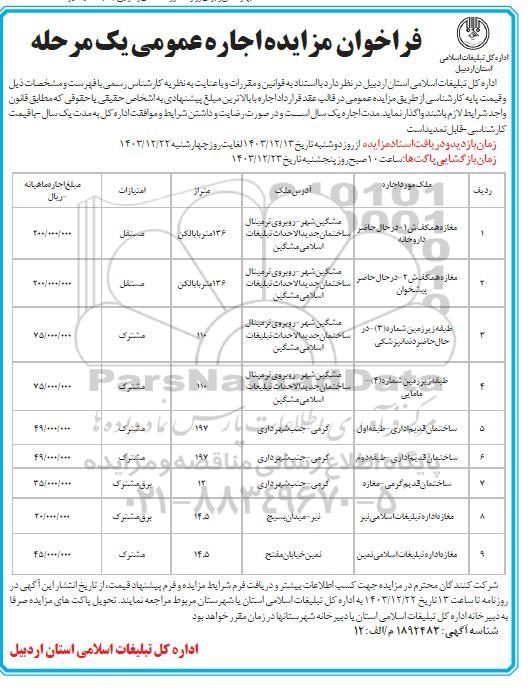 فراخوان مزایده اجاره عمومی یک مرحله
اداره کل تبلیغات اسلامی
استان اردبیل
اداره کل تبلیغات اسلامی استان اردبیل در نظر دارد با استناد به قوانین و مقررات و با عنایت به نظریه کارشناس رسمی با فهرست و مشخصات ذیل
و قیمت پایه کارشناسی از طریق مزایده عمومی در قالب عقد قرارداد اجاره با بالاترین مبلغ پیشنهادی به اشخاص حقیقی یا حقوقی که مطابق قانون
واجد شرایط لازم باشند واگذار نماید. مدت اجاره یک سال است و در صورت رضایت و داشتن شرایط و موافقت اداره کل به مدت یک سال - با قیمت
کارشناسی - قابل تمدید است
زمان بازدید و دریافت اسناد مزایده از روز دوشنبه تاریخ ۱۴۰۳/۱۲/۱۳ لغایت روز چهارشنبه ۱۴۰۳/۱۲/۲۲
زمان بازگشایی پاکت ها: ساعت ۱۰ صبح روز پنجشنبه تاریخ ۱۴۰۳/۱۲/۲۳
ردیف ملک مورد اجاره آدرس ملک متراژ امتیازات مبلغ اجاره ماهیانه - ریال
۱ مغازه همکف ش ۱- در حال حاضر داروخانه مشگین شهر - روبروی ترمینال ساختمان جدیدالاحداث تبلیغات اسلامی مشگین ۱۳۶متر با بالکن مستقل ۲۰۰/۰۰۰/۰۰۰
۲ مغازه همکف ش ۲- در حال حاضر پیشخوان مشگین شهر - روبروی ترمینال ساختمان جدیدالاحداث تبلیغات اسلامی مشگین ۱۳۶متر با بالکن مستقل ۲۰۰/۰۰۰/۰۰۰
۳ طبقه زیرزمین شماره (۳)- در حال حاضر دندانپزشکی مشگین شهر - روبروی ترمینال ساختمان جدیدالاحداث تبلیغات اسلامی مشگین ۱۱۰ مشترک ۷۵/۰۰۰/۰۰۰
۴ طبقه زیرزمین شماره (۴)- مامایی مشگین شهر - روبروی ترمینال ساختمان جدیدالاحداث تبلیغات اسلامی مشگین ۱۱۰ مشترک ۷۵/۰۰۰/۰۰۰
۵ ساختمان قدیم اداری - طبقه اول گرمی - جنب شهرداری ۱۹۷ مشترک ۴۹/۰۰۰/۰۰۰
۶ ساختمان قدیم اداری - طبقه دوم گرمی - جنب شهرداری ۱۹۷ مشترک ۴۹/۰۰۰/۰۰۰
۷ ساختمان قدیم گرمی - مغازه گرمی - جنب شهرداری ۱۲ برق مشترک ۳۵/۰۰۰/۰۰۰
۸ مغازه اداره تبلیغات اسلامی نیر نیر - میدان بسیج ۱۴.۵ برق مشترک ۲۰/۰۰۰/۰۰۰
۹ مغازه اداره تبلیغات اسلامی نمین نمین خیابان مفتح ۱۴.۵ مشترک ۴۵/۰۰۰/۰۰۰
شرکت کنندگان محترم در مزایده جهت کسب اطلاعات بیشتر و دریافت فرم شرایط مزایده و فرم پیشنهاد قیمت، از تاریخ انتشار این آگهی در
روزنامه تا ساعت ۱۳ تاریخ ۱۴۰۳/۱۲/۲۲ به اداره کل تبلیغات اسلامی استان یا شهرستان مربوط مراجعه نمایند. تحویل پاکت های مزایده صرفا
به دبیرخانه اداره کل تبلیغات اسلامی استان یا دبیرخانه شهرستانها در زمان مقرر خواهد بود
شناسه آگهی: ۱۸۹۲۴۸۳ م/الف: ۱۲
اداره کل تبلیغات اسلامی استان اردبیل
ParsNamadData
پایگاه اطلاع رسانی مناقصه و مزایده
۰۲۱-۸۸۳۴۹۶۷۰-۵